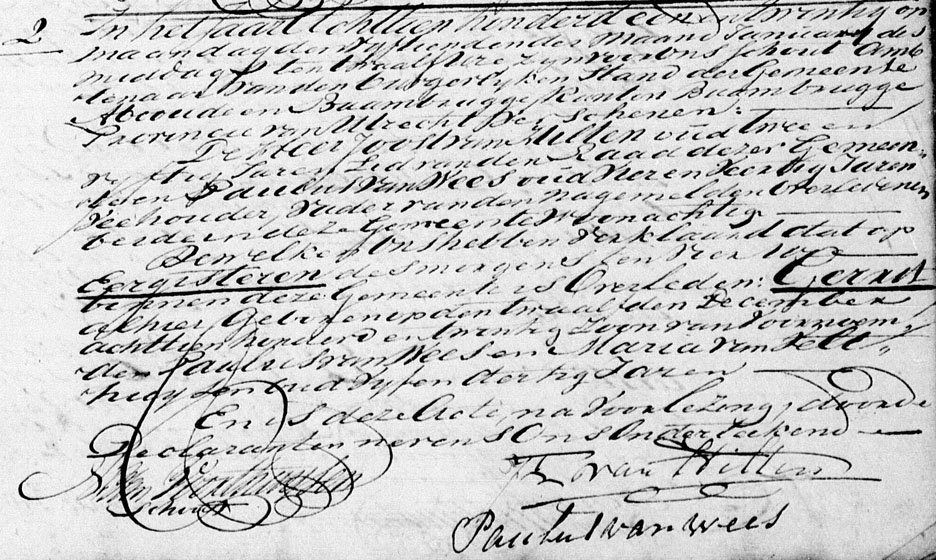 2
In het jaar Achttien honderd een en twintig op
maandag den Vyftienden der Maand January des
middags ten twaalf ure zyn voor Ons Schout Amb
tenaar van den burgerlyken Stand der Gemeente
Abcoude en Baambrugge Kanton Baambrugge
Provincie van Utrecht Verschenen:
De Heer Joost van Hillen oud twee en
vyftig Jaren Lid van den Raad dezer Gemeen
te en Paulus van Wees oud Veertig Jaren
Veehouder, Vader van den nagemelden Overledenen
beide in deze Gemeente Woonachtig
Dewelke Ons hebben Verklaard dat op
Eergisteren des morgens ten Vier Ure
binnen deze Gemeente is Overleden: Gerrit
alhier Geboren op den twaalfden December
achttien honderd en twintig Zoon van Voornoem
de Paulus van Wees en Maria van Velt
huysen oud Vyf en dertig Jaren
En is deze Acte na Voorlezing, door de
Declaranten nevens Ons Ondertekend
J van Hillen
Schout
Paulus van Wees